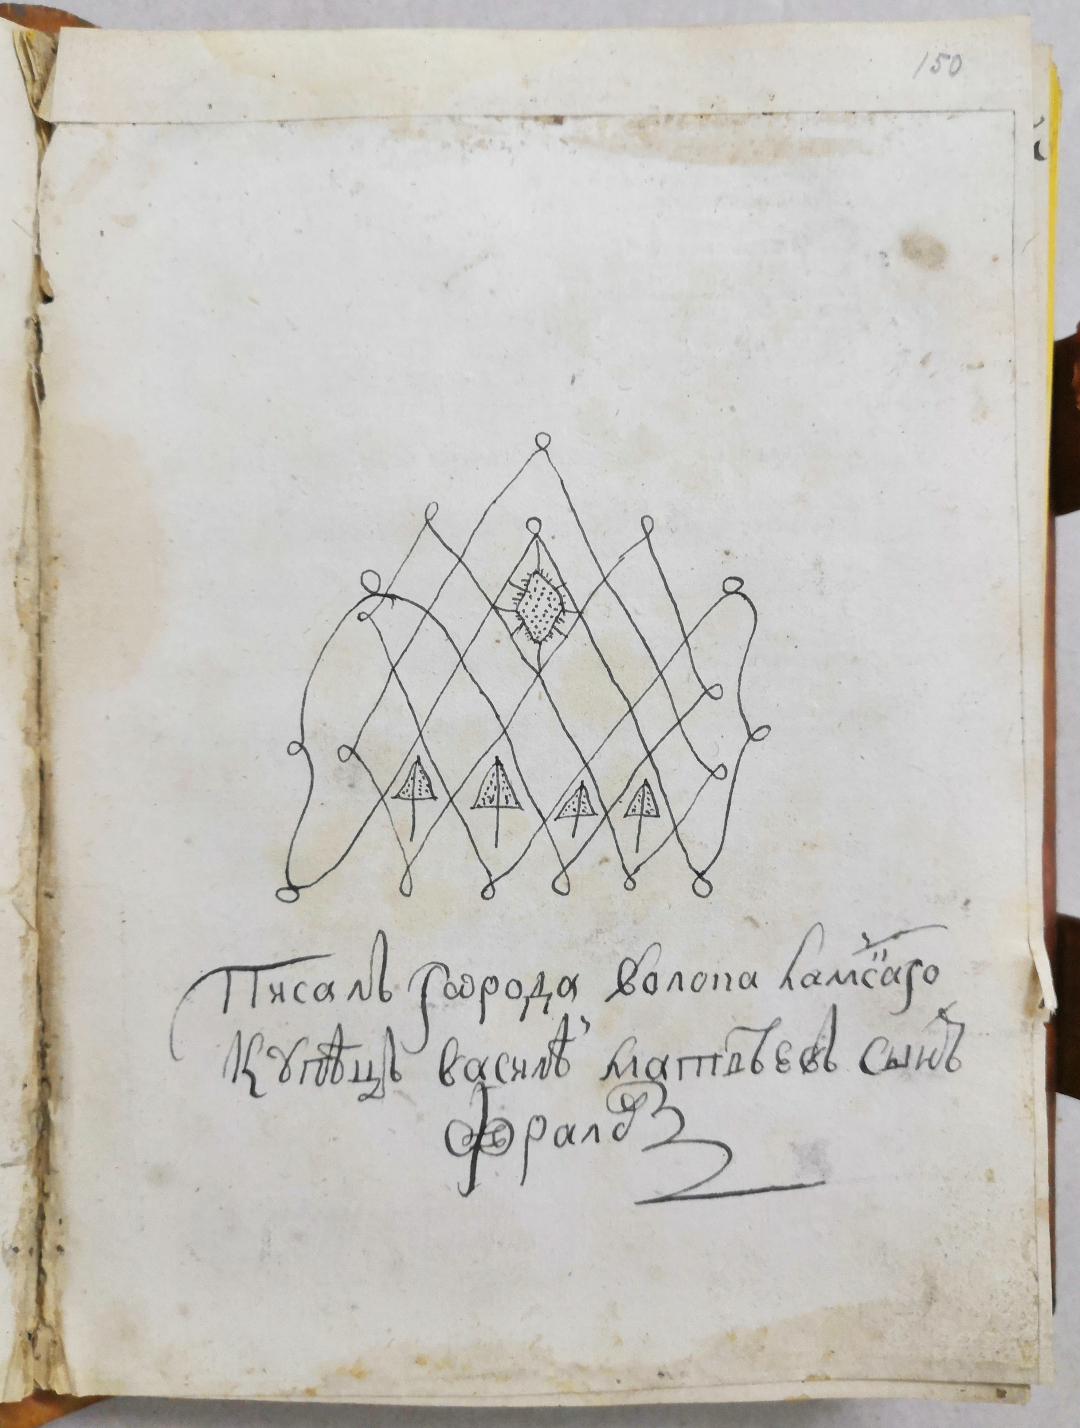 150
Писалъ города волопа ламсаго
Купѣцъ василѣ матвѣевъ сынъ
Фралов